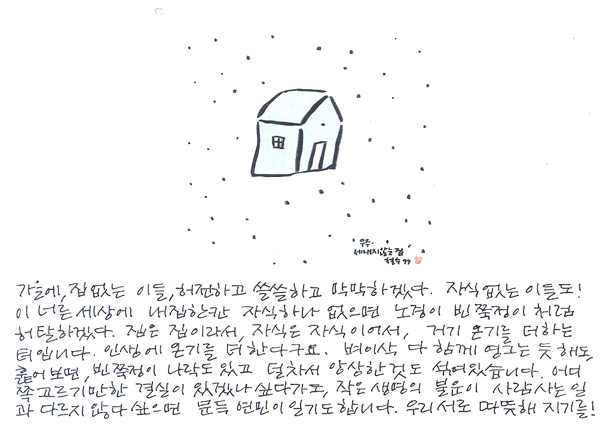 우주.
세내지않는 집
철수 99
가을에, 집 없는 이들, 허전하고 쓸쓸하고 막막하겠다. 자식 없는 이들도!
이 너른 세상에 내 집 한 칸 자식 하나 없으면 노경이 빈 쭉정이 처럼
허탈하겠다. 집은 집이라서, 자식은 자식이어서, 거기 온기를 더하는
터입니다. 인생에 온기를 더한다구요. 벼이삭 다 함께 영그는 듯 해도,
훑어 보면, 빈 쭉정이 나락도 있고 덜 차서 앙상한 것도 섞여있습니다. 어디
쪽 고르기만한 결실이 있겠나 싶다가도, 작은 생명의 불운이 사람 사는 일
과 다르지 않다 싶으면 문득 연민이 일기도 합니다. 우리 서로 따뜻해 지기를!